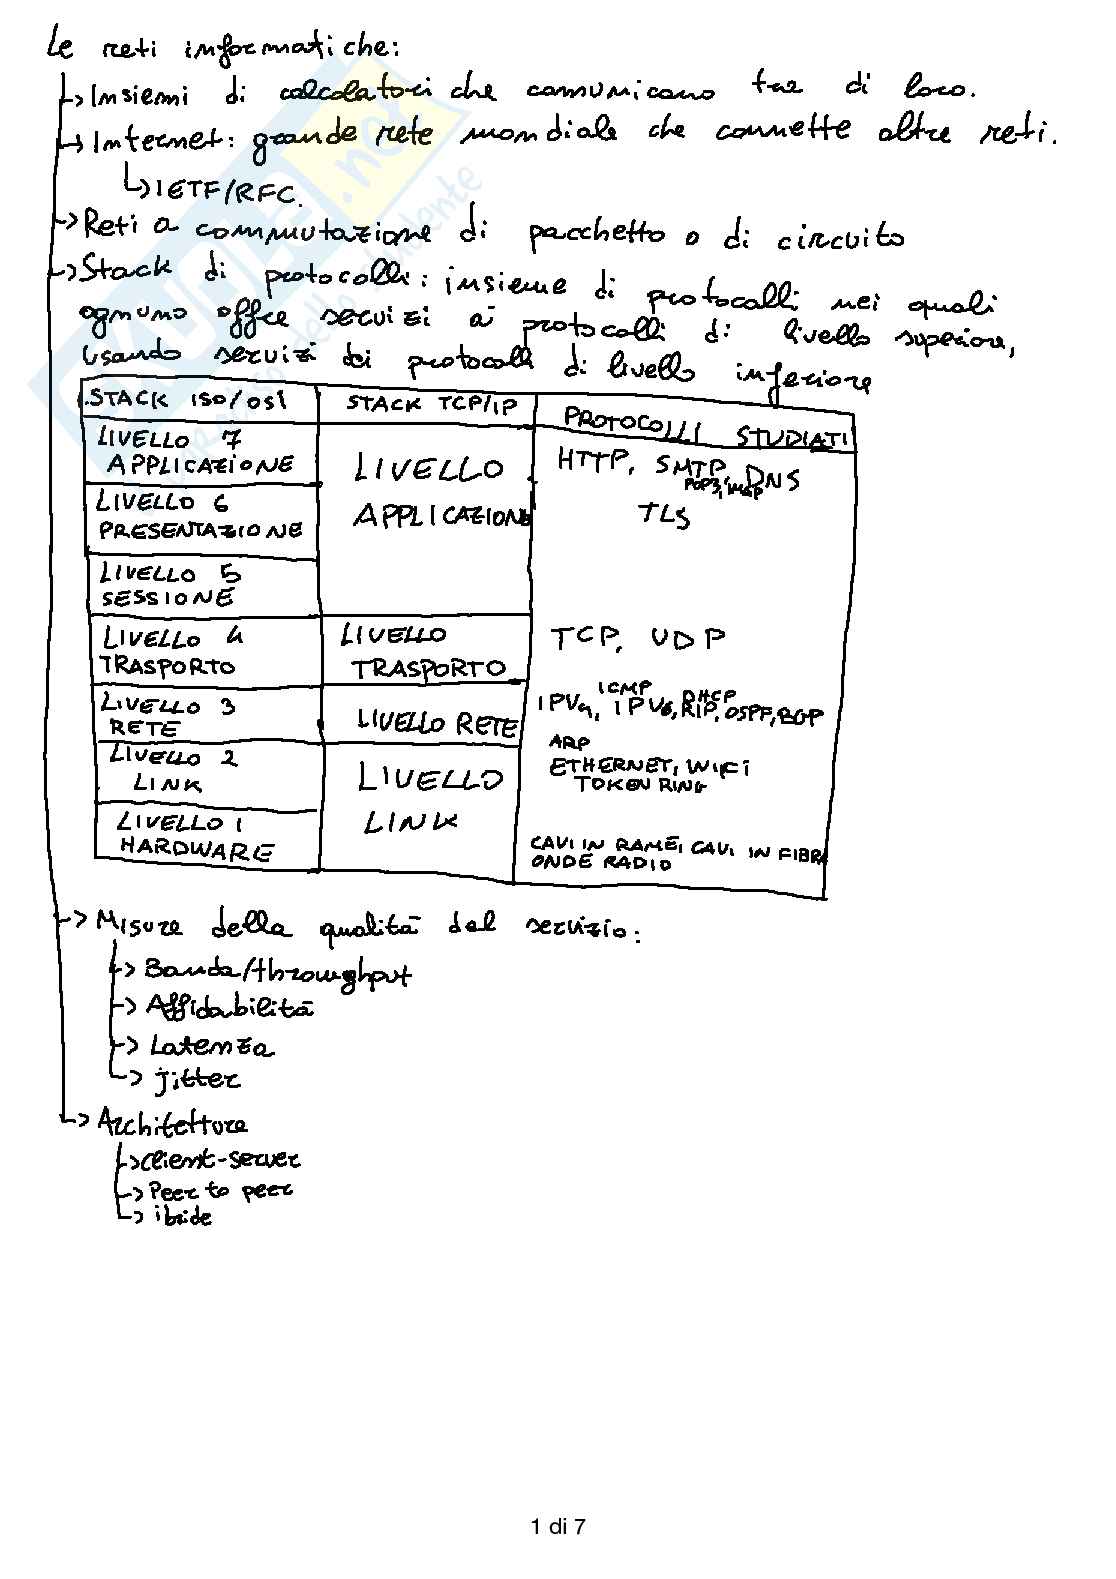 Le reti informatiche:
↳ Insiemi di calcolatori che comunicano tra di loro.
↳ Internet: grande rete mondiale che connette altre reti.
↳ IETF/RFC.
↳ Reti a commutazione di pacchetto o di circuito
↳ Stack di protocolli: insieme di protocolli nei quali
ognuno offre servizi a protocolli di livello superiore,
usando servizi dei protocolli di livello inferiore
STACK ISO/OSI STACK TCP/IP PROTOCOLLI STUDIATI
LIVELLO 7
APPLICAZIONE
LIVELLO 6
PRESENTAZIONE
LIVELLO 5
SESSIONE
LIVELLO
APPLICAZIONE
HTTP, SMTP, DNS
POP3, IMAP
TLS
LIVELLO 4
TRASPORTO
LIVELLO
TRASPORTO
TCP, UDP
LIVELLO 3
RETE
LIVELLO RETE
ICMP DHCP
IPV4, IPV6, RIP, OSPF, BGP
LIVELLO 2
LINK
LIVELLO 1
HARDWARE
LIVELLO
LINK
ARP
ETHERNET, WIFI
TOKEN RING
CAVI IN RAME, CAVI IN FIBRA
ONDE RADIO
↳ Misure della qualità del servizio:
↳ Banda/throughput
↳ Affidabilità
↳ Latenza
↳ jitter
↳ Architetture
↳ client-server
↳ Peer to peer
↳ ibride
1 di 7